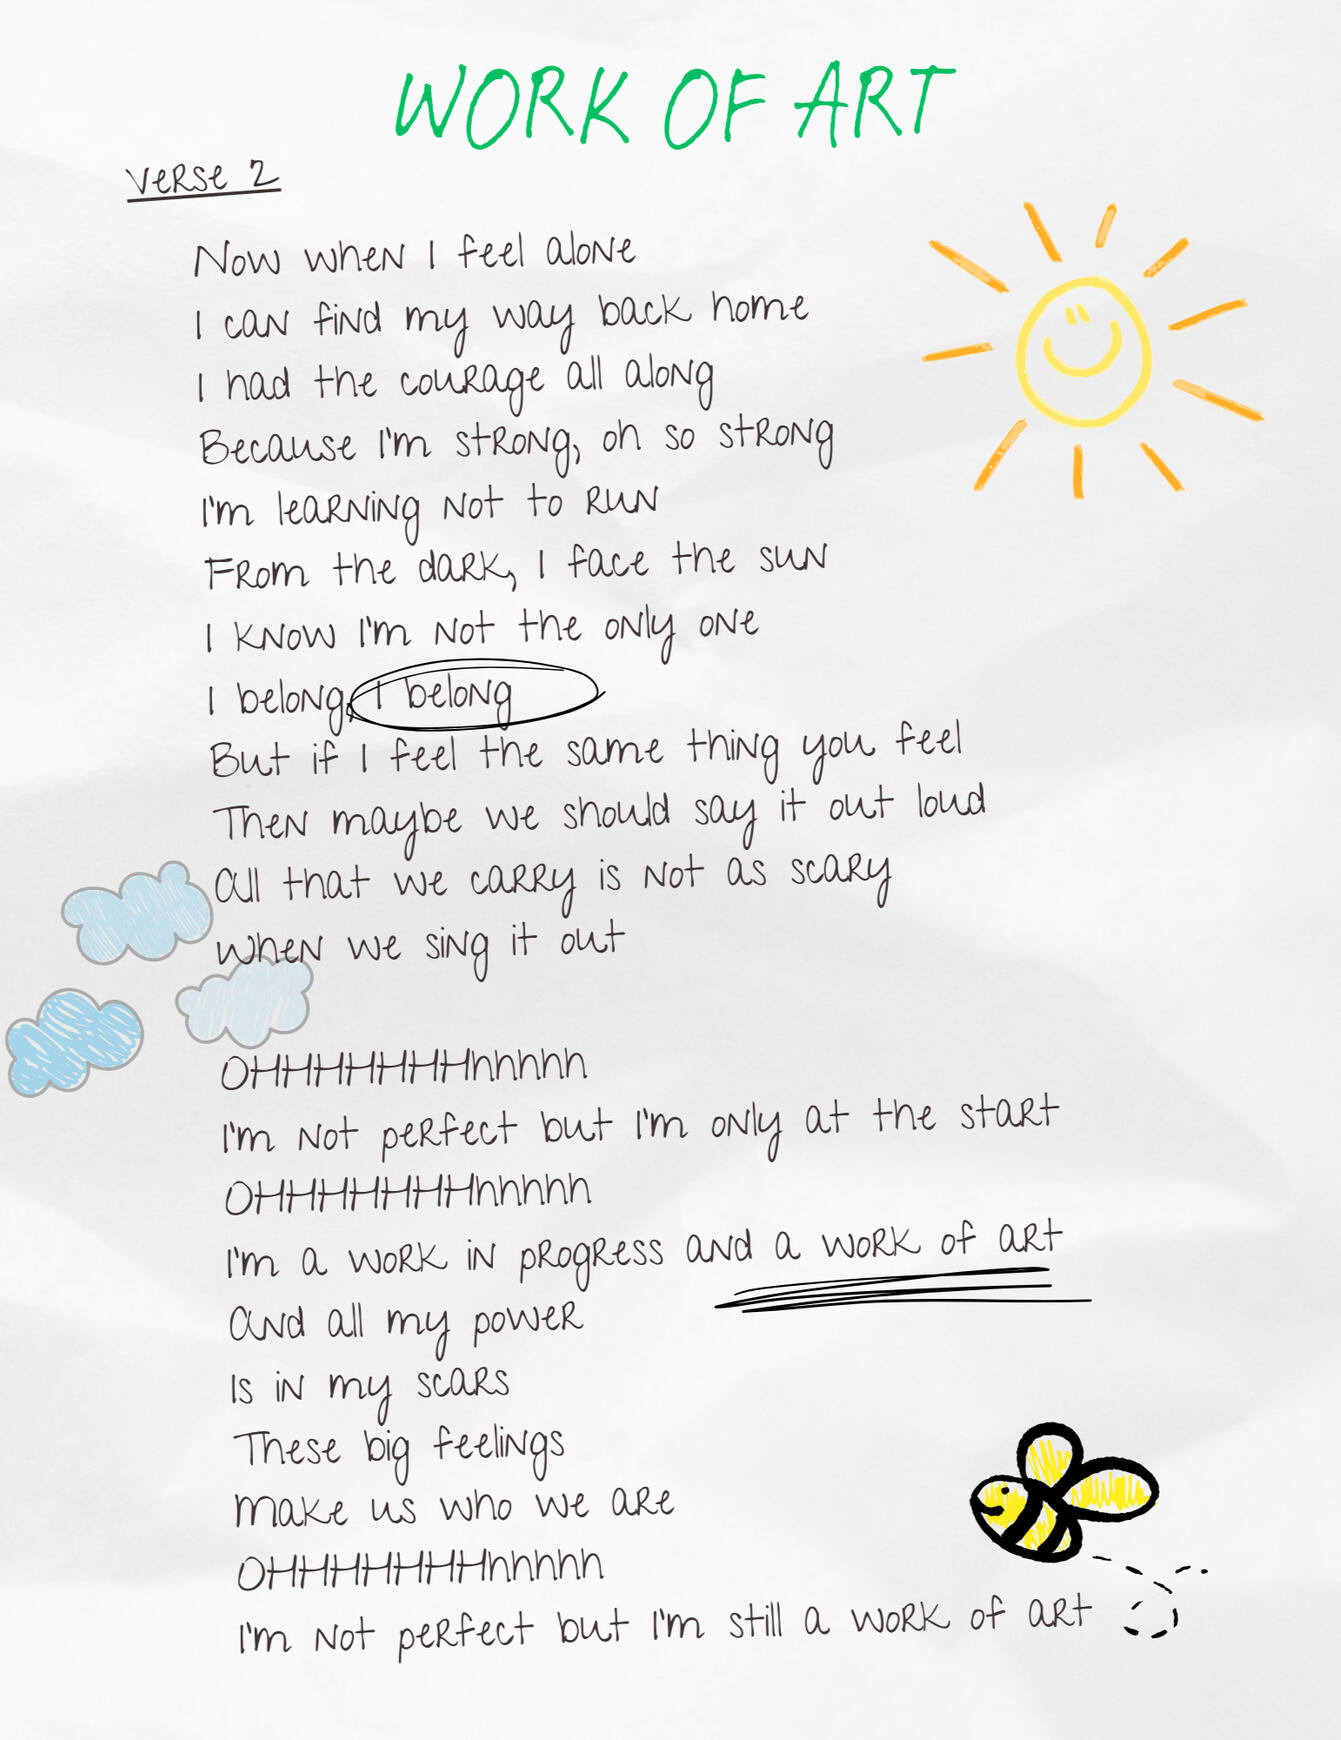 WORK OF ART
Verse 2
Now when I feel alone
I can find my way back home
I had the courage all along
Because I'm strong, oh so strong
I'm learning not to run
From the dark, I face the sun
I know I'm not the only one
I belong, I belong
But if I feel the same thing you feel
Then maybe we should say it out loud
All that we carry is not as scary
When we sing it out
OHHHHHHHhhhhh
I'm not perfect but I'm only at the start
OHHHHHHHhhhhh
I'm a work in progress and a work of art
And all my power
Is in my scars
These big feelings
Make us who we are
OHHHHHHHhhhhh
I'm not perfect but I'm still a work of art